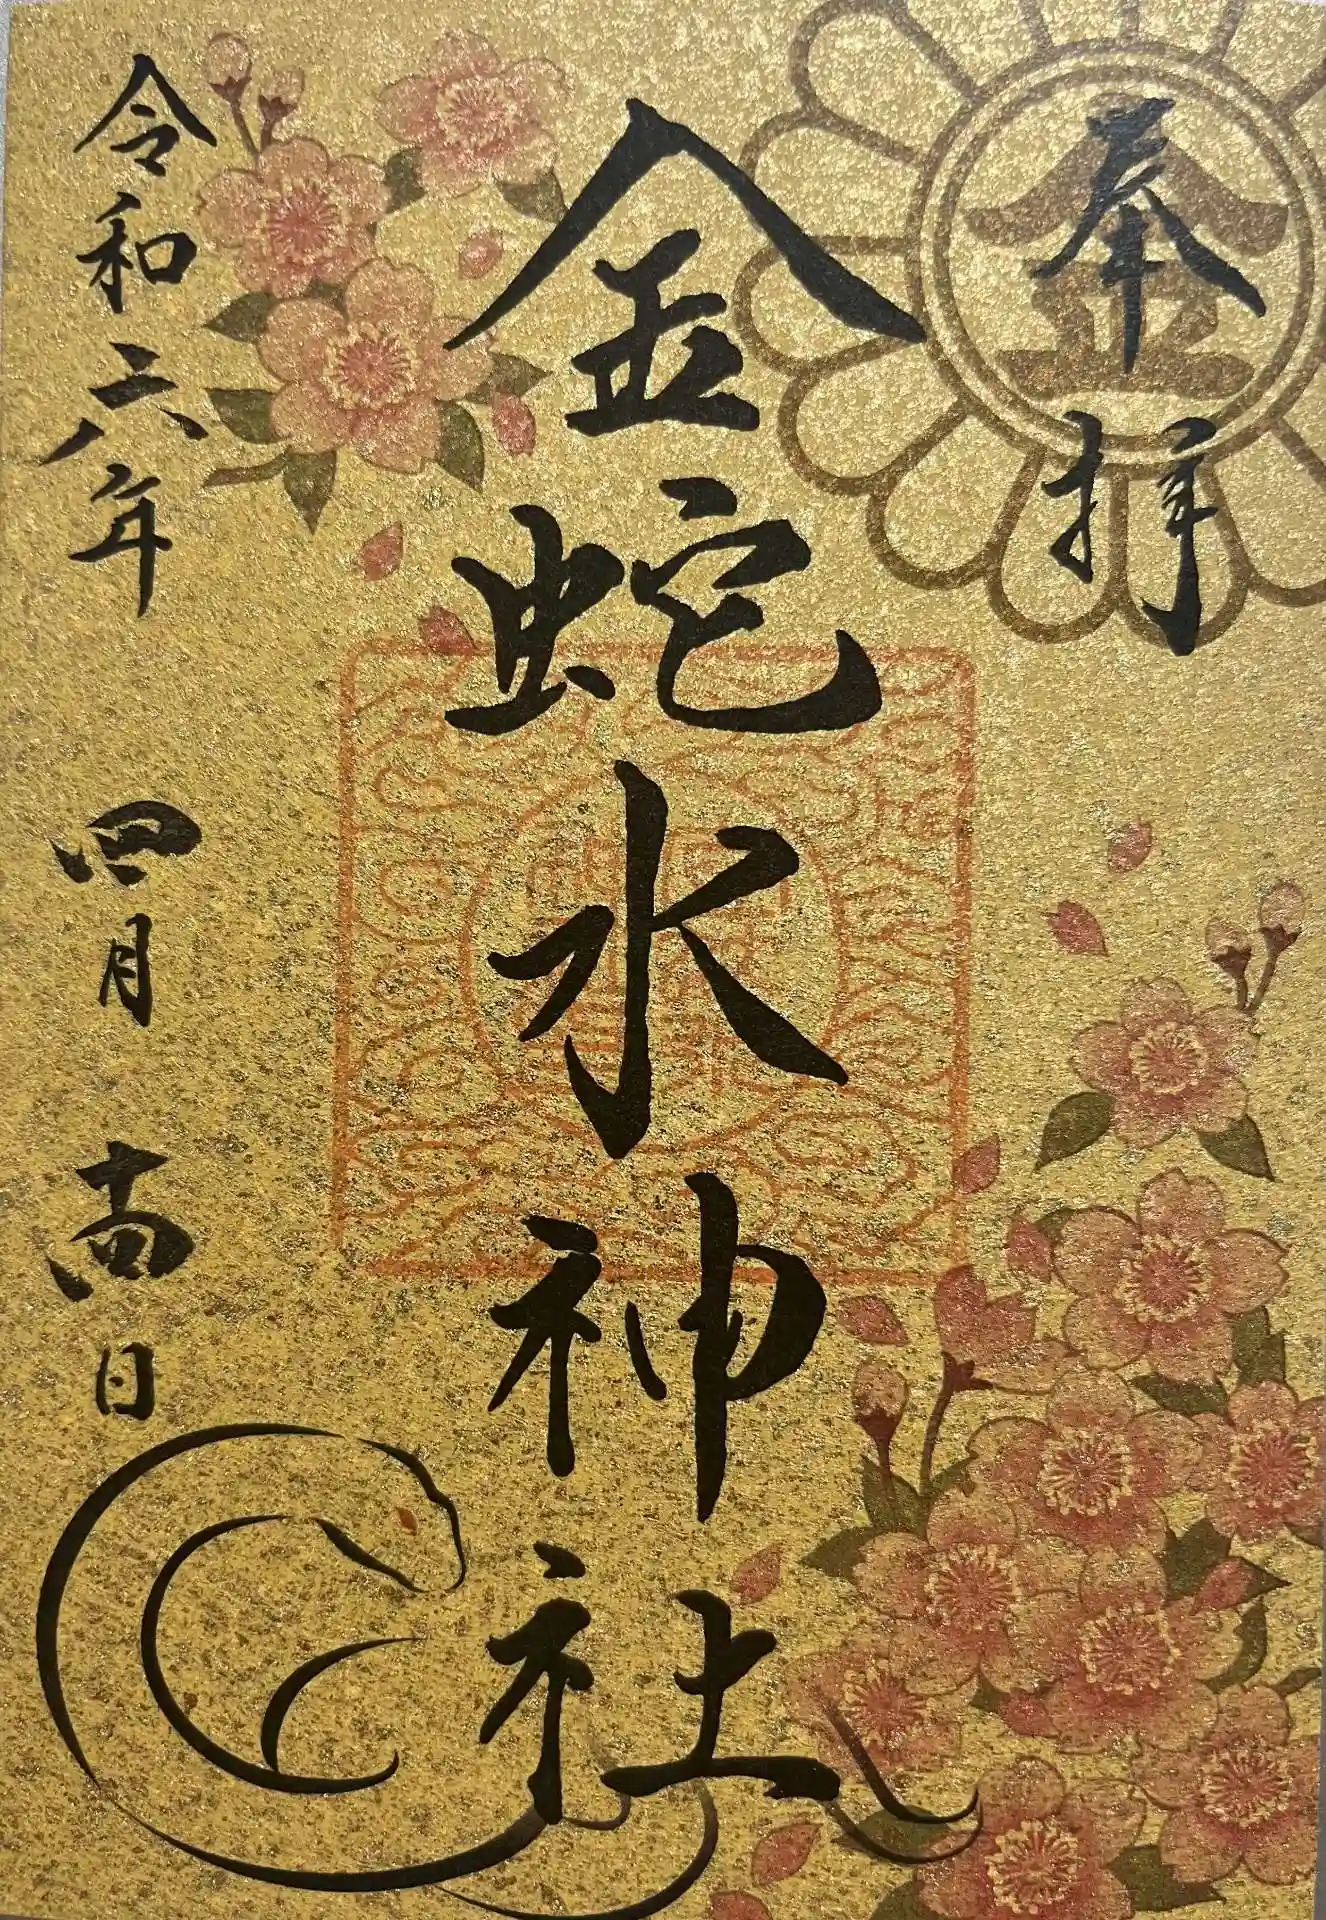 奉拝
金
金蛇水神社
令和六年 四月 十四日